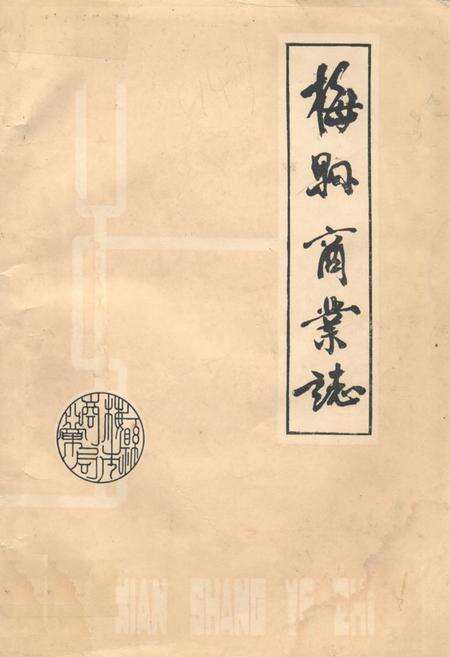 梅縣商業誌
梅縣市商業局
XIAN SHANG YE ZHI